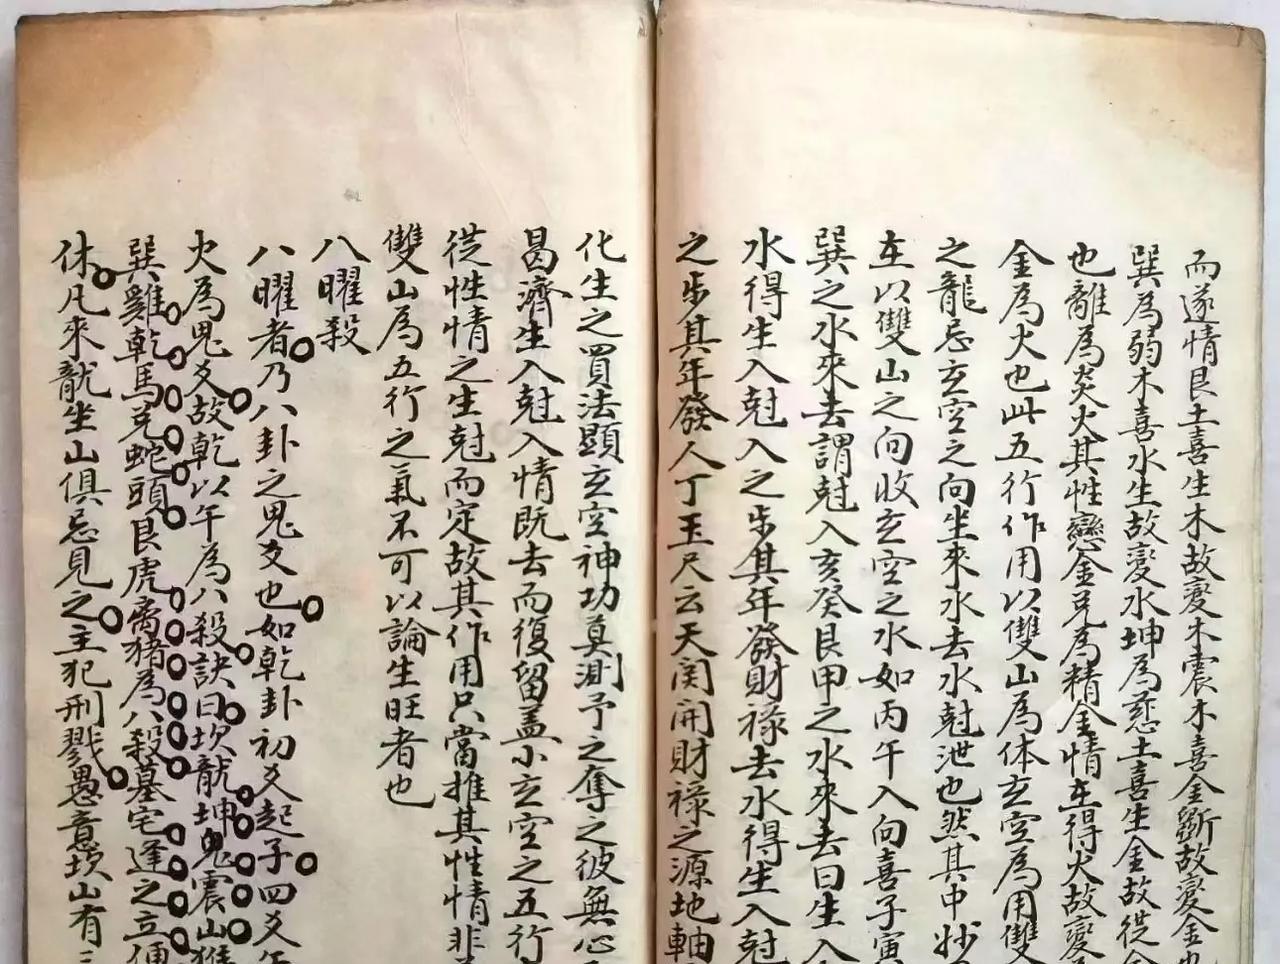 而遂情艮土喜生木故变木震木喜金斵故变金也
巽為弱木喜水生故変水坤為慈土喜生金故従金
也離為炎火其性戀金兑為精金情在得火故変
金為火也此五行作用以雙山為体玄空為用雙
之龍忌玄空之向生來水去水尅泄也然其中妙
在以雙山之向收玄空之水如丙午入向喜子寅
巽之水來去謂尅入亥癸艮甲之水來去曰生入
水得生入尅入之步其年發財祿去水得生入尅
之步其年發人丁玉尺云天関開財祿之源地軸
化生之買法顕玄空神功真測予之奪之彼無心
曷濟生入尅入情既去而復留盖小玄空之五行
従性情之生尅而定故其作用只當推其性情非
雙山為五行之氣不可以論生旺者也
八曜殺
八曜者乃八卦之鬼爻也如乾卦初爻起子四爻午
火為鬼爻故乾以午為八殺訣曰坎龍坤兔震山猴
巽雞乾馬兑蛇頭艮虎离猪為八殺墓宅逢之立便
休凡來龍坐山俱忌見之主犯刑戮愚意坎山有三